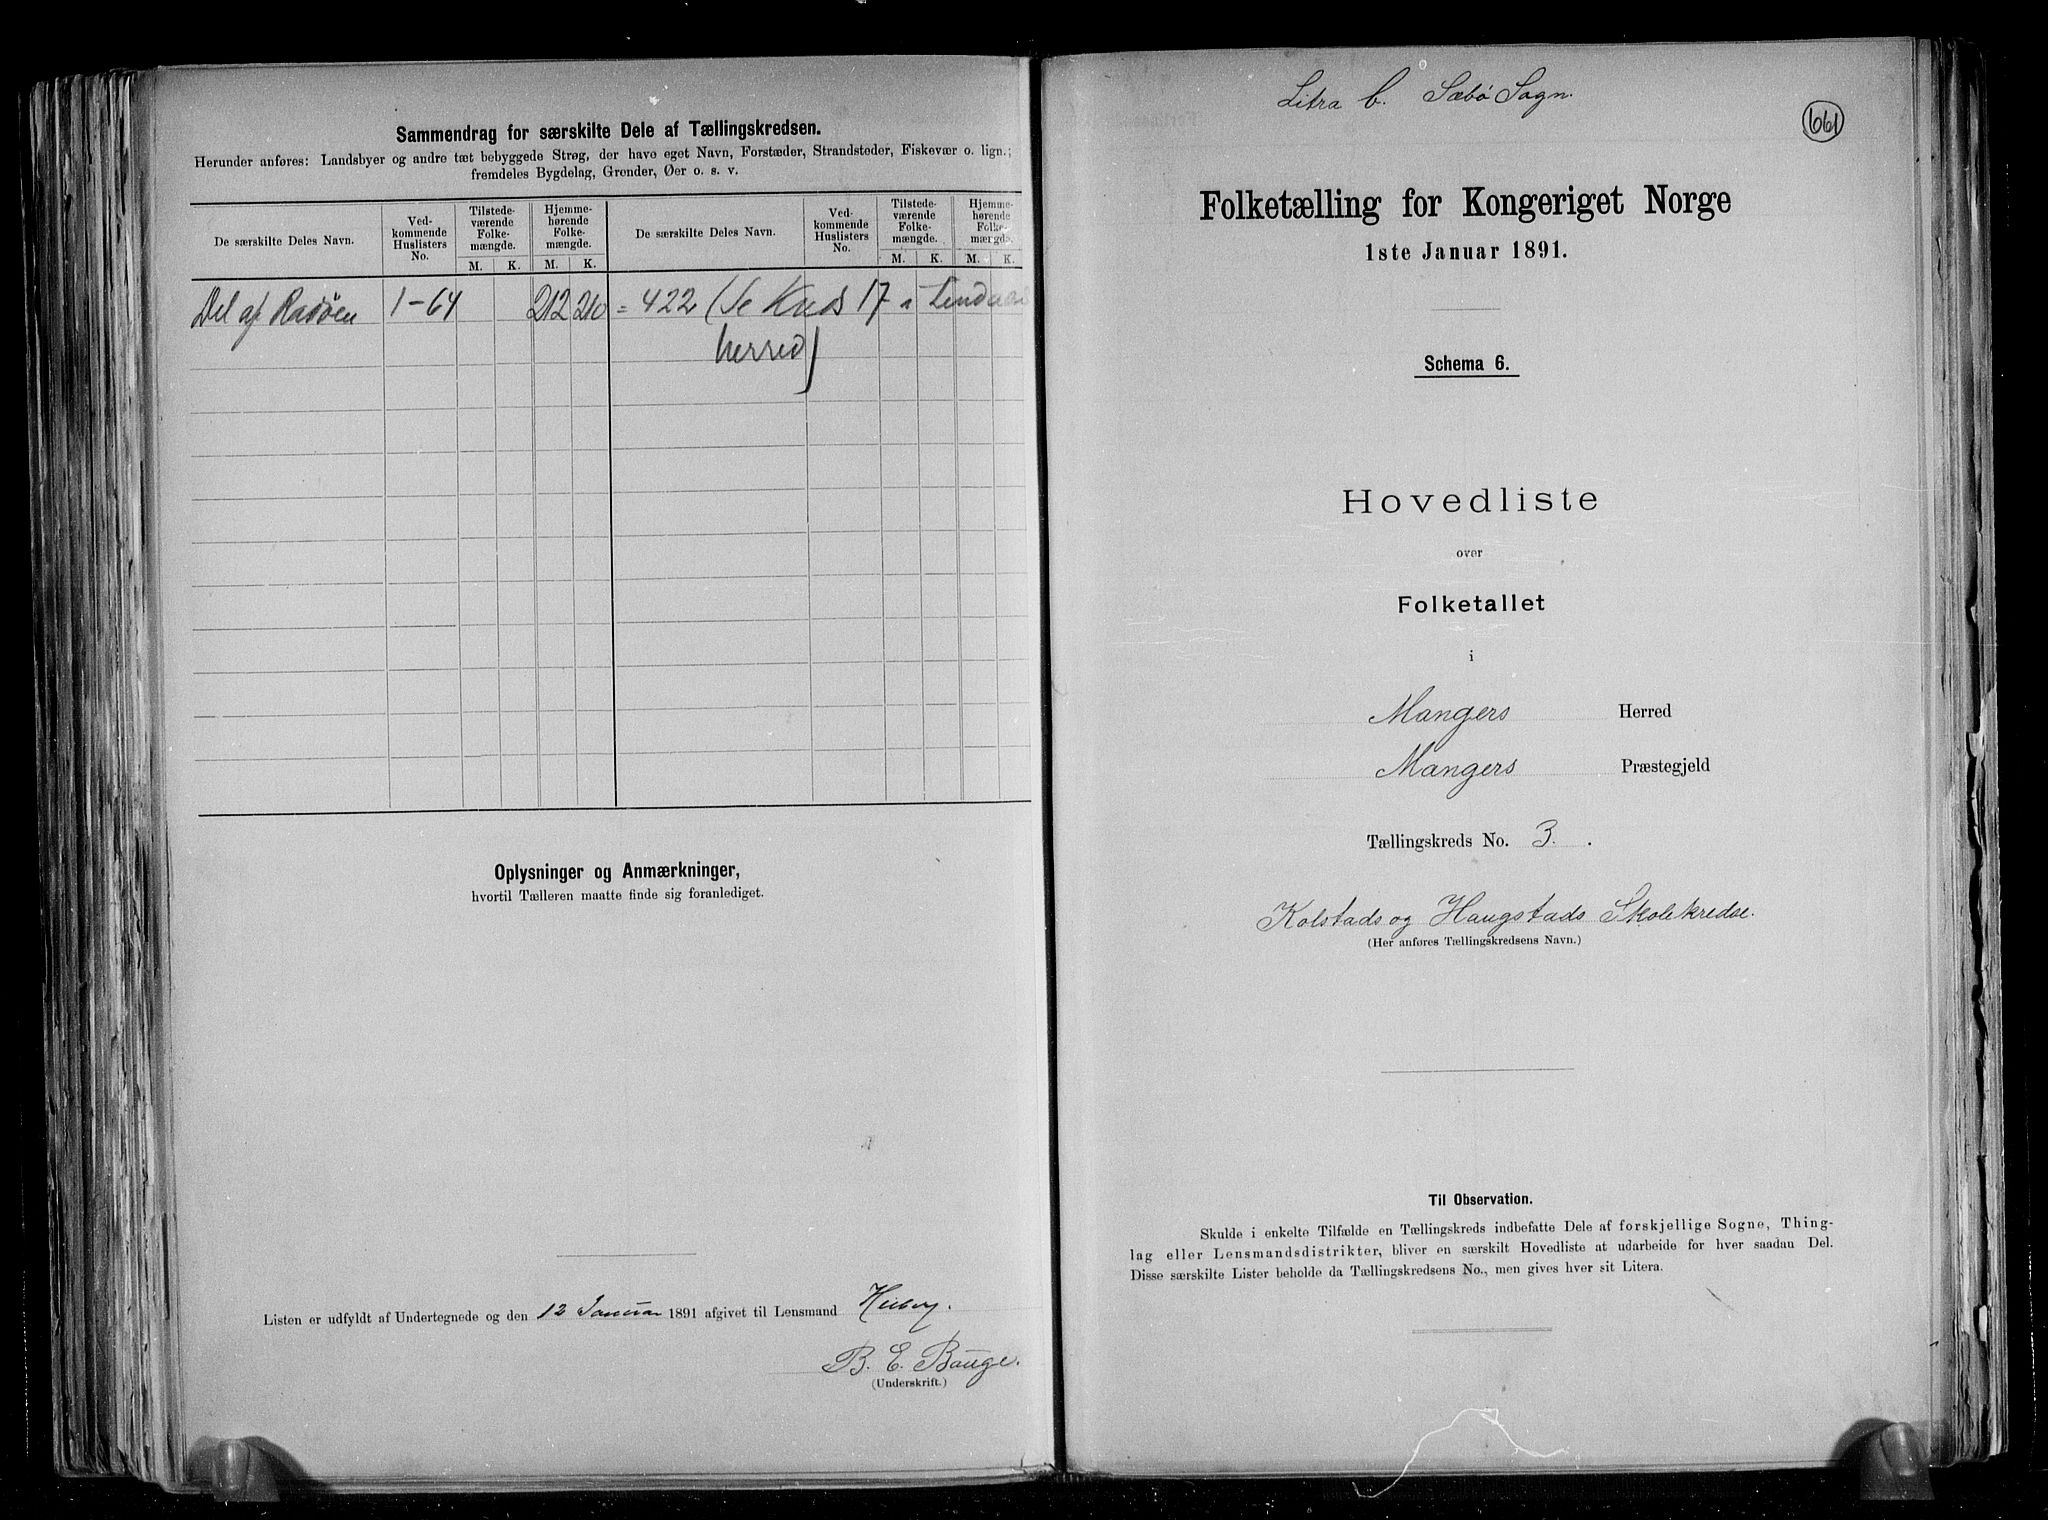 Sammendrag for særskilte Dele af Tællingskredsen.
Herunder anføres: Landsbyer og andre tæt bebyggede Strøg, der have eget Navn, Forstæder, Strandsteder, Fiskevær o. lign.;
fremdeles Bygdelag, Grender, Øer o. s. v.
De særskilte Deles Navn. Ved-kommende Huslisters No. Tilstede-værende Folke-mængde. Hjemme-hørende Folke-mængde. De særskilte Deles Navn. Ved-kommende Huslisters No. Tilstede-værende Folke-mængde. Hjemme-hørende Folke-mængde.
M. K. M. K. M. K. M. K.
Del af Radøen 1-64 212 210 = 422 (Se Kreds 17 i Lindaas
herred)
Oplysninger og Anmærkninger,
hvortil Tælleren maatte finde sig foranlediget.
Listen er udfyldt af Undertegnede og den 12 Januar 1891 afgivet til Lensmand Heiberg.
B. E. Bauge.
(Underskrift.)
Litra b. Sæbø Sogn.
661
Folketælling for Kongeriget Norge
1ste Januar 1891.
Schema 6.
Hovedliste
over
Folketallet
i
Mangers Herred
Mangers Præstegjeld
Tællingskreds No. 3.
Kolstads og Haugstads Skolekredse.
(Her anføres Tællingskredsens Navn.)
Til Observation.
Skulde i enkelte Tilfælde en Tællingskreds indbefatte Dele af forskjellige Sogne, Thing-
lag eller Lensmandsdistrikter, bliver en særskilt Hovedliste at udarbeide for hver saadan Del.
Disse særskilte Lister beholde da Tællingskredsens No., men gives hver sit Litera.